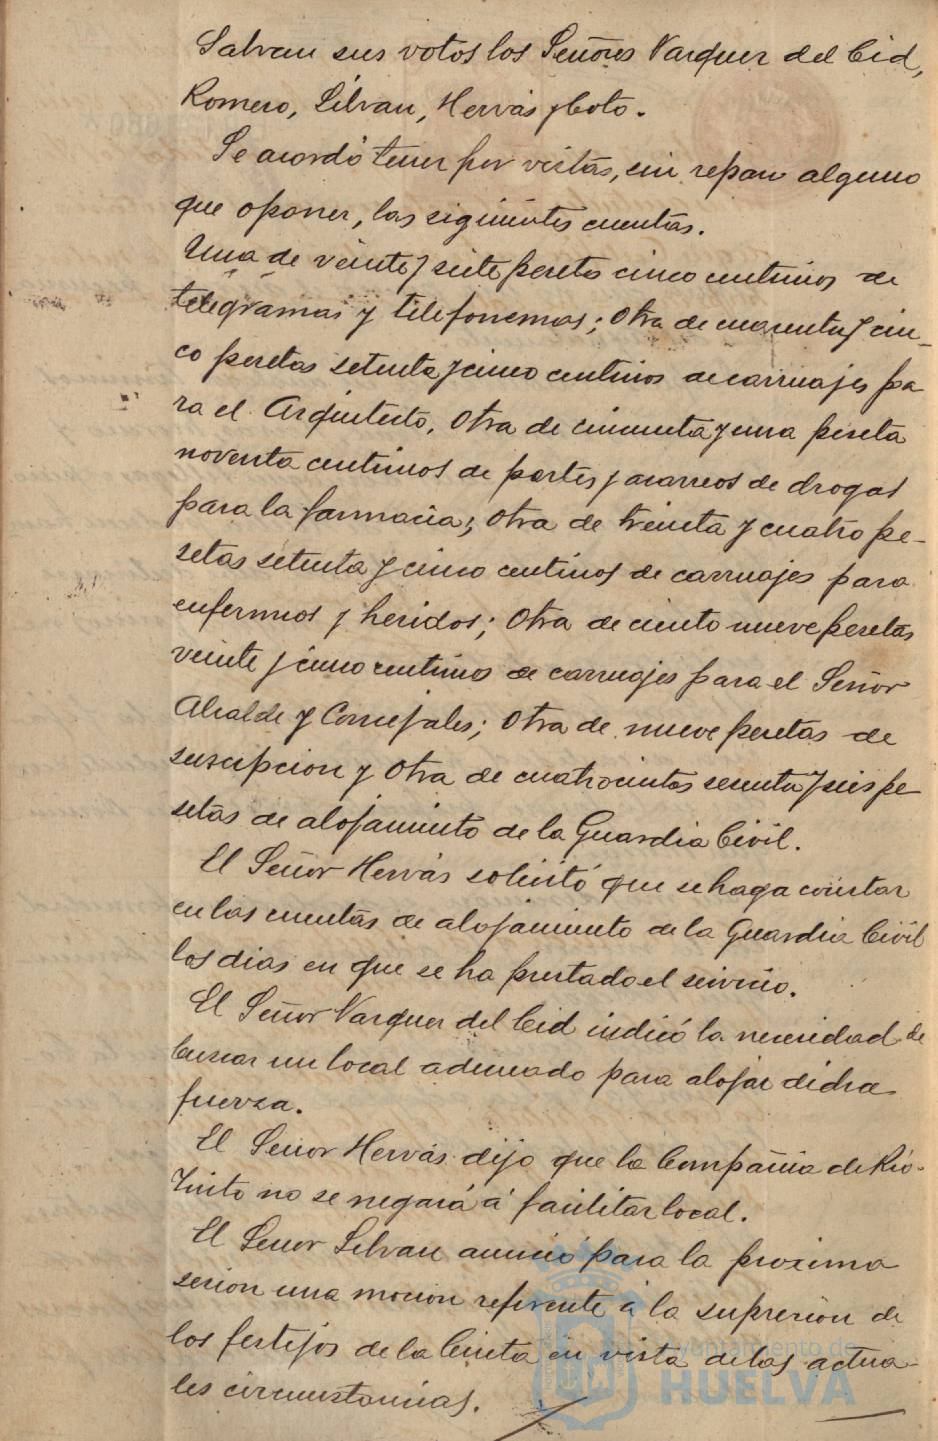 Salvan sus votos los Señores Vazquez del Cid,
Romero, Silvan, Hervás y Coto.
Se acordó tener por vistas, sin reparo alguno
que oponer, las siguientes cuentas.
Una de veinte y siete pesetas cinco centimos de
telegramas y telefonemas; Otra de cuarenta y cin-
co pesetas setenta y cinco centimos de carruajes pa
ra el Arquitecto, Otra de cincuenta y una peseta
noventa centimos de portes y acarreos de drogas
para la farmacia; Otra de treinta y cuatro pe-
setas setenta y cinco centimos de carruajes para
enfermos y heridos; Otra de ciento nueve pesetas
veinte y cinco centimos de carruajes para el Señor
Alcalde y Concejales; Otra de nueve pesetas de
suscripcion y Otra de cuatrocientos sesenta y seis pe
setas de alojamiento de la Guardia Civil.
El Señor Hervás solicitó que se haga constar
en las cuentas de alojamiento de la Guardia Civil
los dias en que se ha prestado el servicio.
El Señor Vazquez del Cid indicó la necesidad de
buscar un local adecuado para alojar dicha
fuerza.
El Señor Hervás dijo que la Compañia de Rio-
Tinto no se negará á facilitar local.
El Señor Silvan anunció para la proxima
sesion una mocion referente á la supresion de
los festejos de la Cinta en vista de las actua-
les circunstancias.
Ayuntamiento de
HUELVA